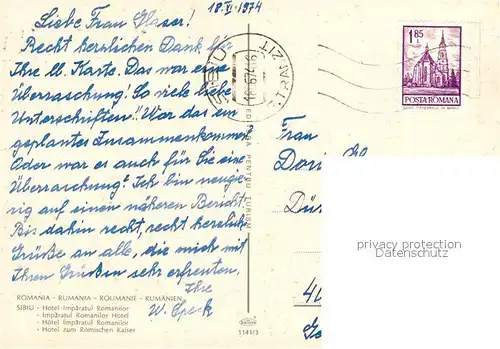 18.VI.1974
Liebe Frau Glaser!
Recht herzlichen Dank für
Ihre ll. Karte. Das war eine
Überraschung! So viele liebe
Unterschriften! War das ein
geplantes Zusammenkommen
Oder war es auch für Sie eine
Überraschung? Ich bin neugie-
rig auf einen näheren Bericht.
Bis dahin recht, recht herzliche
Grüße an alle, die mich mit
Ihren Grüßen sehr erfreuten,
Ihre
W. Speck
ROMANIA - RUMANIA - ROUMANIE - RUMÄNIEN
SIBIU - Hotel Împăratul Romanilor
- Împăratul Romanilor Hotel
- Hôtel Împăratul Romanilor
- Hotel zum Römischen Kaiser
1141/3
PENTRU TURISM
SIBIU
TRANZIT
1,85
L
POSTA ROMANA
Frau
privacy protection
Datenschutz